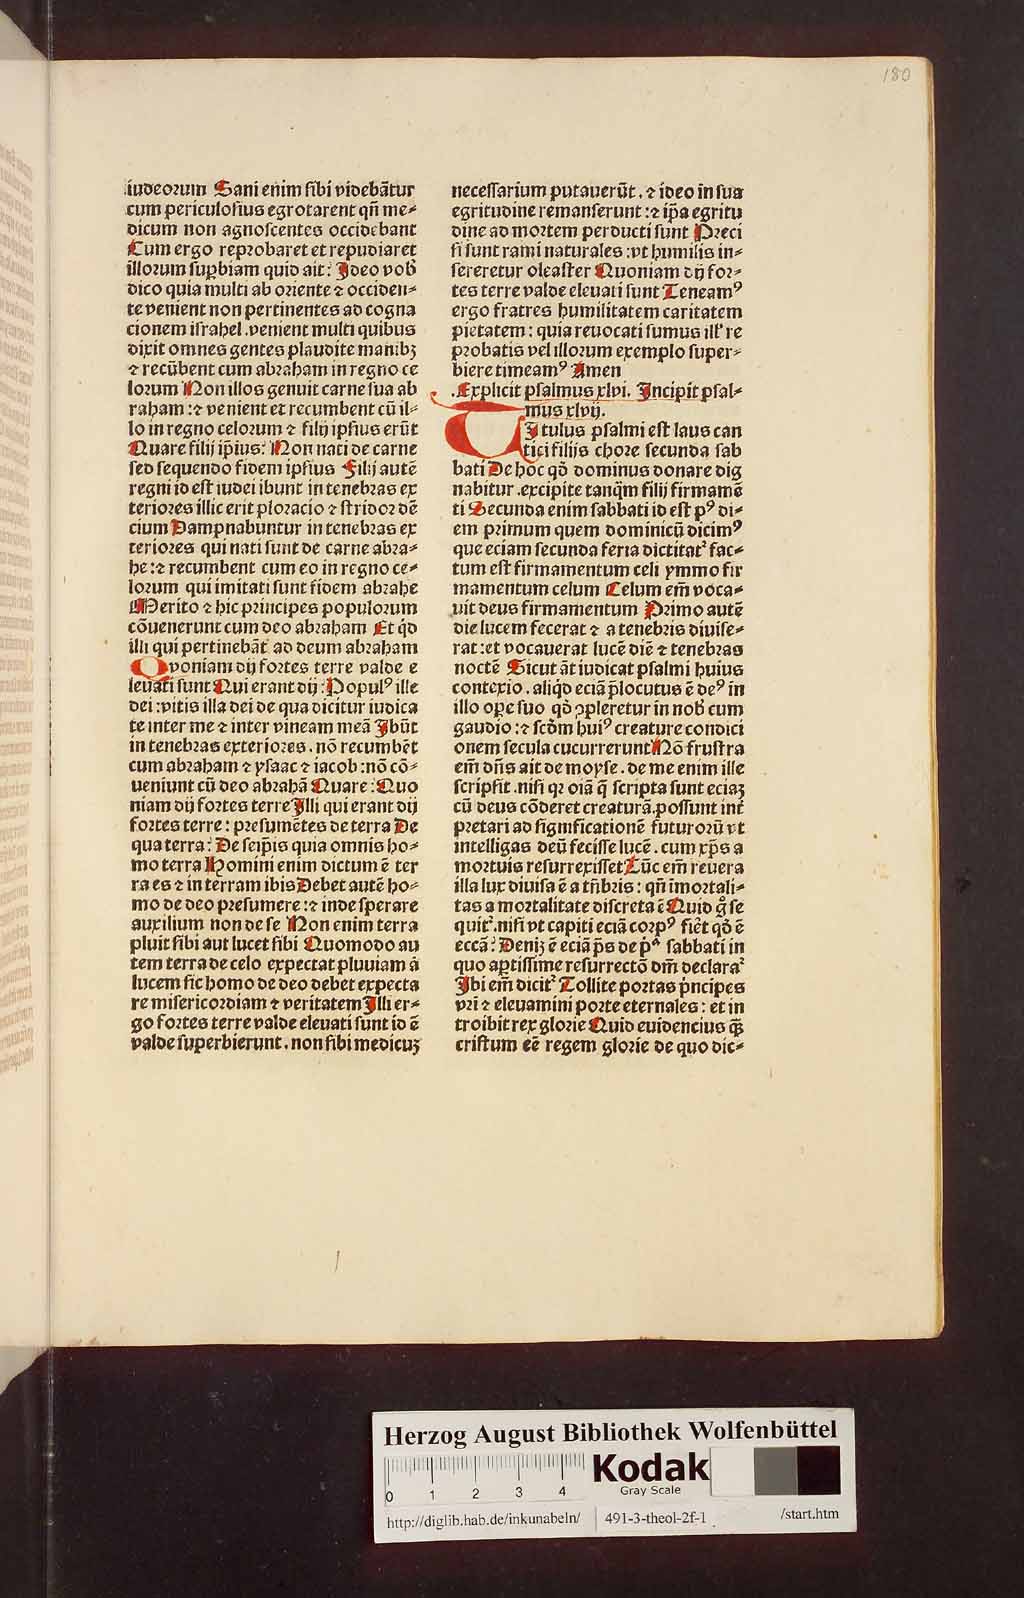 180
iudeorum Sani enim sibi videbãtur
cum periculosius egrotarent qñ me-
dicum non agnoscentes occidebant
Cum ergo reprobaret et repudiaret
illorum supbiam quid ait: Ideo vob
dico quia multi ab oriente ⁊ occiden-
te venient non pertinentes ad cogna
cionem israhel .venient multi quibus
dixit omnes gentes plaudite manibꝫ
⁊ recũbent cum abraham in regno ce
lorum Non illos genuit carne sua ab
raham :⁊ venient et recumbent cũ il-
lo in regno celorum ⁊ filij ipsius erũt
Quare filij ip̃ius: Non nati de carne
sed sequendo fidem ipsius Filij autẽ
regni id est iudei ibunt in tenebras ex
teriores illic erit ploracio ⁊ stridor dẽ
cium Dampnabuntur in tenebras ex
teriores qui nati sunt de carne abra-
he :⁊ recumbent cum eo in regno ce-
lorum qui imitati sunt fidem abrahe
Merito ⁊ hic principes populorum
cõuenerunt cum deo abraham Et q̇d
illi qui pertinebãt ad deum abraham
Quoniam dij fortes terre valde e
leuati sunt Qui erant dij : Populꝰ ille
dei :vitis illa dei de qua dicitur iudica
te inter me ⁊ inter vineam meã Ibũt
in tenebras exteriores . nõ recumbẽt
cum abraham ⁊ ysaac ⁊ iacob :nõ cõ-
ueniunt cũ deo abrahã Quare : Quo
niam dij fortes terre Illi qui erant dij
fortes terre : presumẽtes de terra De
qua terra: De seip̃is quia omnis ho-
mo terra Homini enim dictum ẽ ter
ra es ⁊ in terram ibis Debet autẽ ho-
mo de deo presumere :⁊ inde sperare
auxilium non de se Non enim terra
pluit sibi aut lucet sibi Quomodo au
tem terra de celo expectat pluuiam ⁊
lucem sic homo de deo debet expecta
re misericordiam ⁊ veritatem Illi er-
go fortes terre valde eleuati sunt id ẽ
valde superbierunt . non sibi medicuꝫ
necessarium putauerũt . ⁊ ideo in sua
egritudine remanserunt :⁊ ip̃a egritu
dine ad mortem perducti sunt Preci
si sunt rami naturales :vt humilis in-
sereretur oleaster Quoniam dij for-
tes terre valde eleuati sunt Teneamꝰ
ergo fratres humilitatem caritatem
pietatem : quia reuocati sumus ill' re
probatis vel illorum exemplo super-
biere timeamꝰ Amen
.Explicit psalmus xlvi. Incipit psal-
mus xlvij.
TItulus psalmi est laus can
tici filijs chore secunda sab
bati De hoc qd̃ dominus donare dig
nabitur .excipite tanq̃m filij firmamẽ
ti Secunda enim sabbati id est pꝰ di-
em primum quem dominicũ dicimꝰ
que eciam secunda feria dictitat᷑ fac-
tum est firmamentum celi ymmo fir
mamentum celum Celum em̃ voca-
uit deus firmamentum Primo autẽ
die lucem fecerat ⁊ a tenebris diuise-
rat :et vocauerat lucẽ diẽ ⁊ tenebras
noctẽ Sicut ãt iudicat psalmi huius
contexio . aliq̇d eciã p̃locutus ẽ deꝰ in
illo ope suo qd̃ ꝯpleretur in nob cum
gaudio :⁊ scd̃m huiꝰ creature condici
onem secula cucurrerunt Nõ frustra
em̃ dñs ait de moyse . de me enim ille
scripsit .nisi qꝛ oiã q̃ scripta sunt eciaꝫ
cũ deus cõderet creaturã .possunt int̃
pretari ad significationẽ futurorũ vt
intelligas deũ fecisse lucẽ . cum xp̃s a
mortuis resurrexisset Tũc em̃ reuera
illa lux diuisa ẽ a tñbris : qñ imortali-
tas a mortalitate discreta ẽ Quid g̊ se
quit᷑ .nisi vt capiti eciã corpꝰ fiẽt qd̃ ẽ
eccã: Deniꝫ ẽ eciã p̃s de pª sabbati in
quo aptissime resurrectõ dm̃ declarat᷑
Ibi em̃ dicit᷑ Tollite portas p̃ncipes
vr̃i ⁊ eleuamini porte eternales : et in
troibit rex glorie Quid euidencius q̃ꝫ
cristum eẽ regem glorie de quo dic-
Herzog August Bibliothek Wolfenbüttel
0 1 2 3 4
Kodak
Gray Scale
http://diglib.hab.de/inkunabeln/
491-3-theol-2f-1
/start.htm